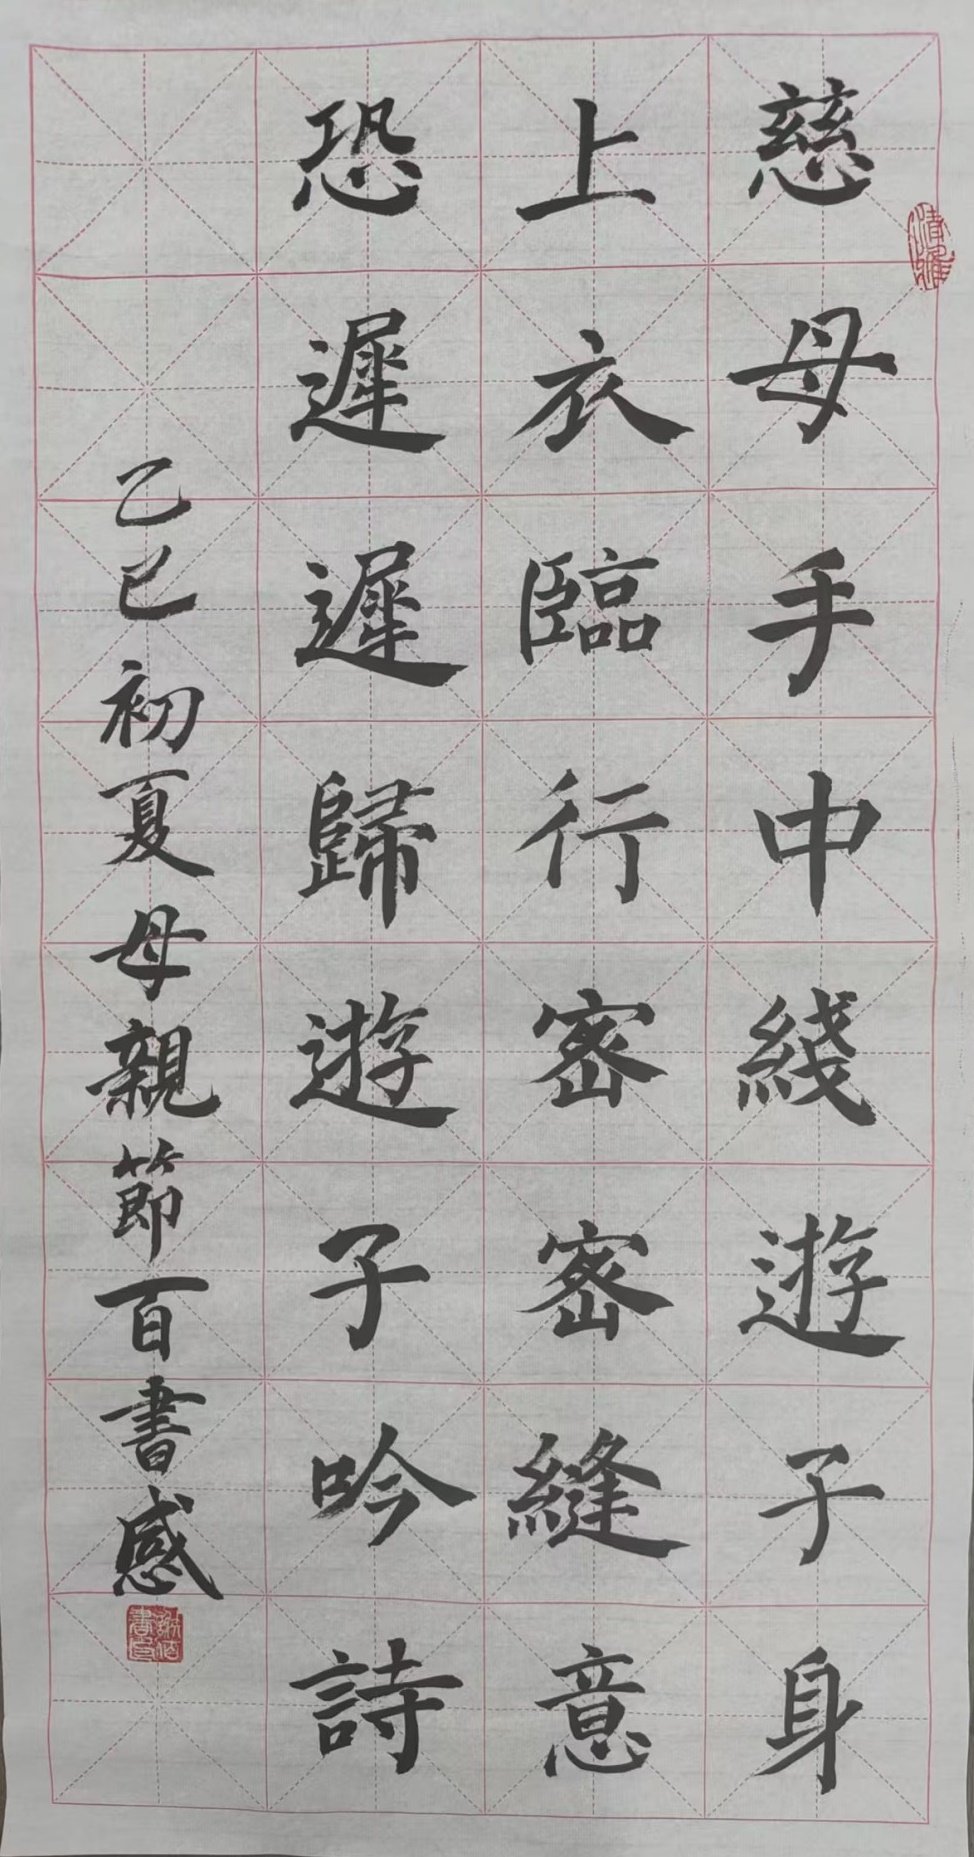 慈母手中綫遊子身
上衣臨行密密縫意
恐遲遲歸遊子吟詩
乙巳初夏母親節百書感